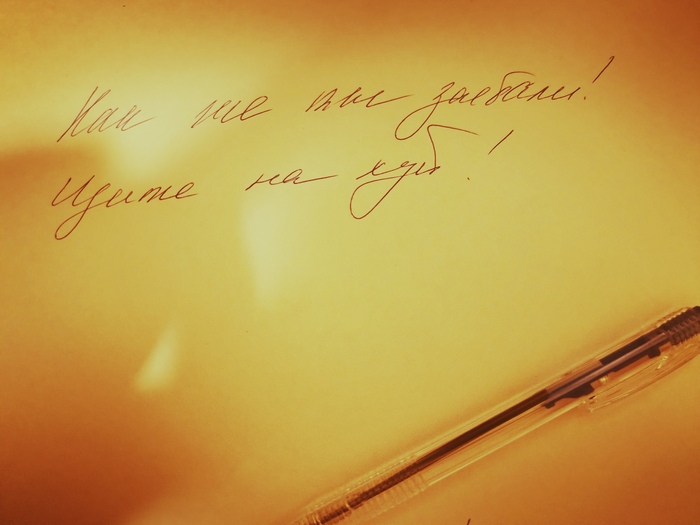 Как же вы заебали!
Идите на хуй!